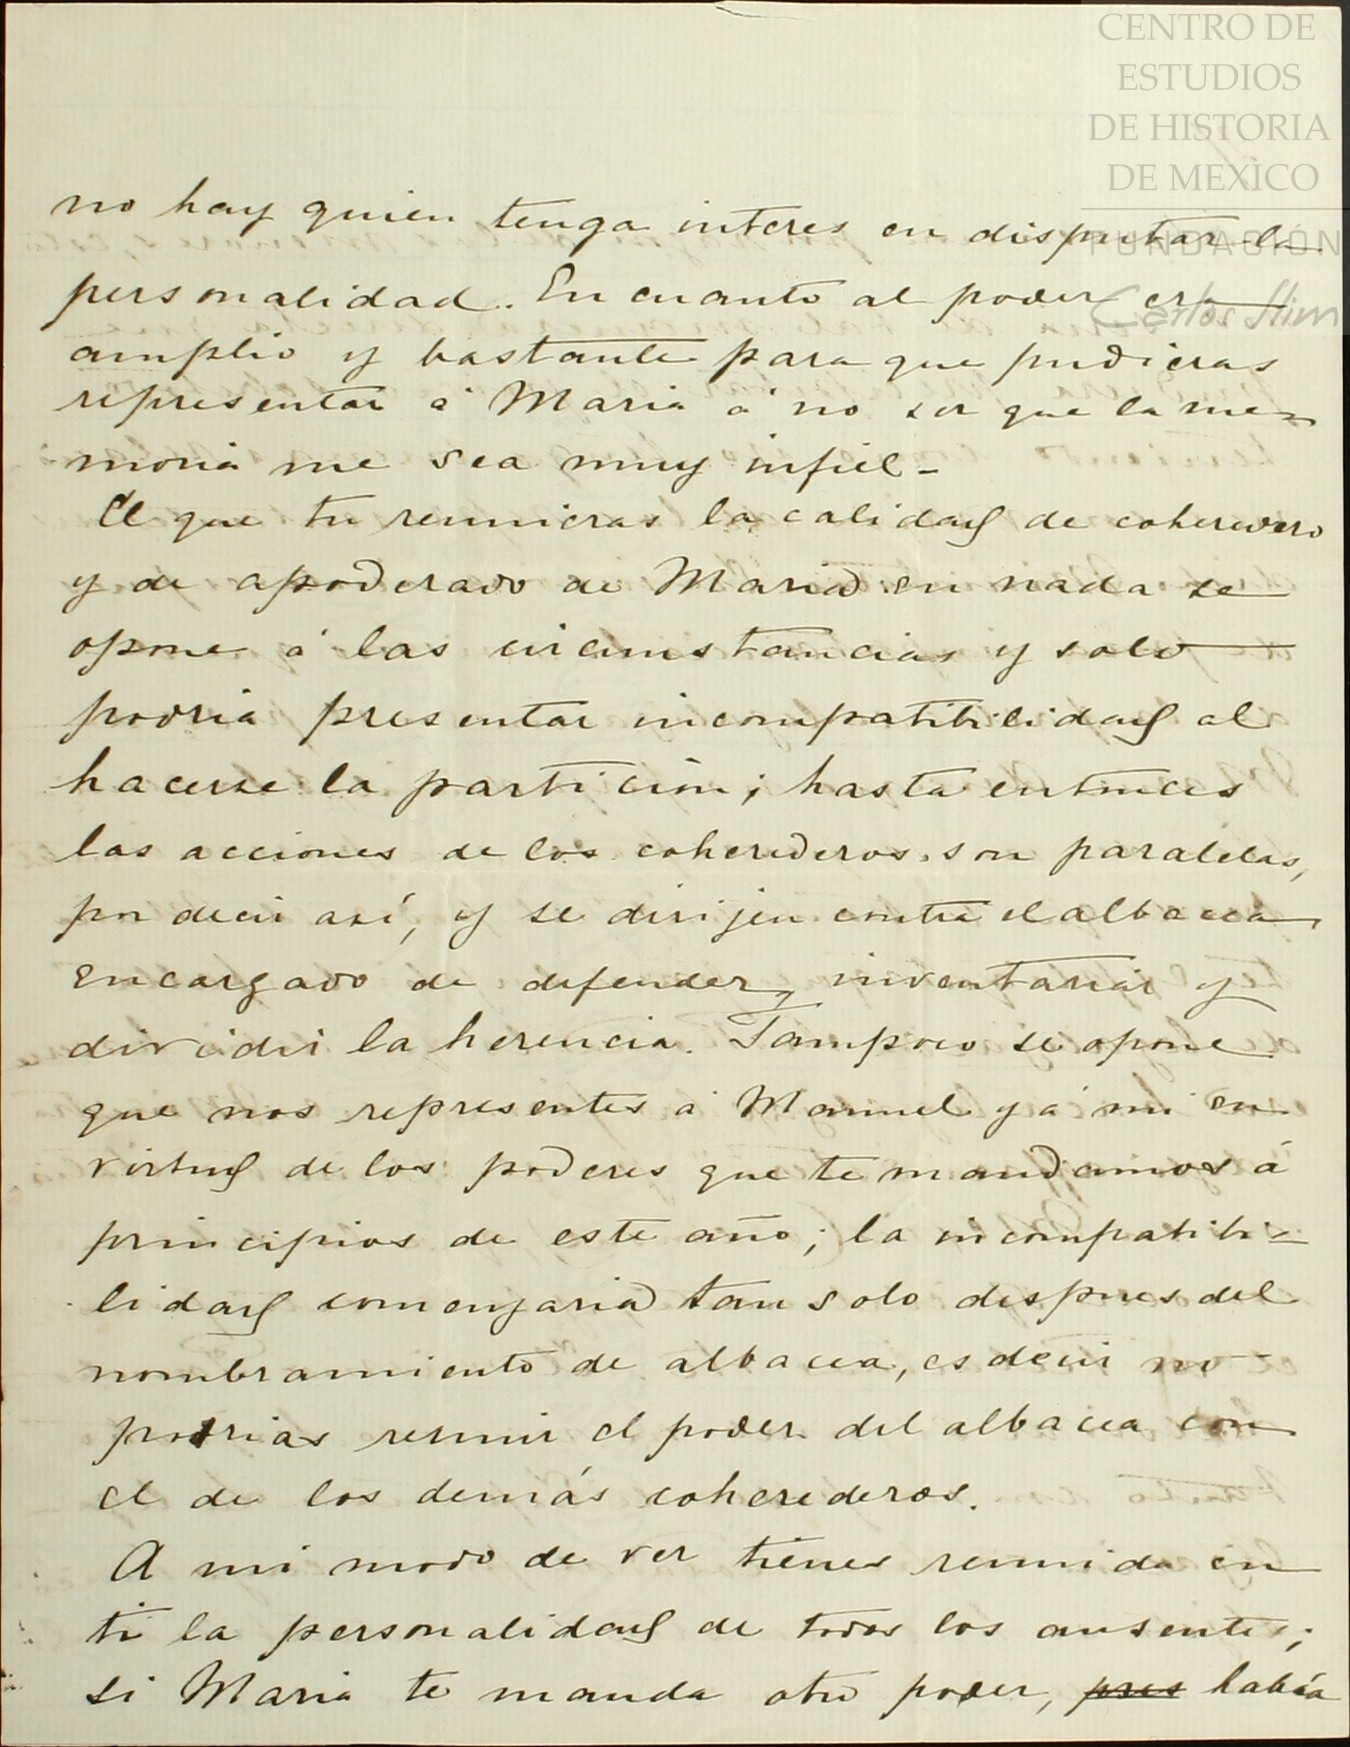 CENTRO DE
ESTUDIOS
DE HISTORIA
DE MEXICO
FUNDACIÓN
Carlos Slim
no hay quien tenga interes en disputar la
personalidad. En cuanto al poder era
amplio y bastante para que pudieras
representar á Maria á no ser que la me-
moria me sea muy infiel-
El que tu reunieras la calidad de coheredero
y de apoderado de Maria en nada se
opone á las circunstancias y solo
podria presentar incompatibilidad al
hacerse la particion; hasta entonces
las acciones de los coherederos son paralelas,
por decir así, y se dirijen contra el albacea
encargado de defender, inventariar y
dividir la herencia. Tampoco se opone
que nos representes á Manuel y á mi en
virtud de los poderes que te mandamos á
principios de este año; la incompatibi-
lidad comenzaria tan solo despues del
nombramiento de albacea, es decir no
podrias reunir el poder del albacea con
el de los demás coherederos.
A mi modo de ver tienes reunida en
ti la personalidad de todos los ausentes;
si Maria te manda otro poder, pues habia